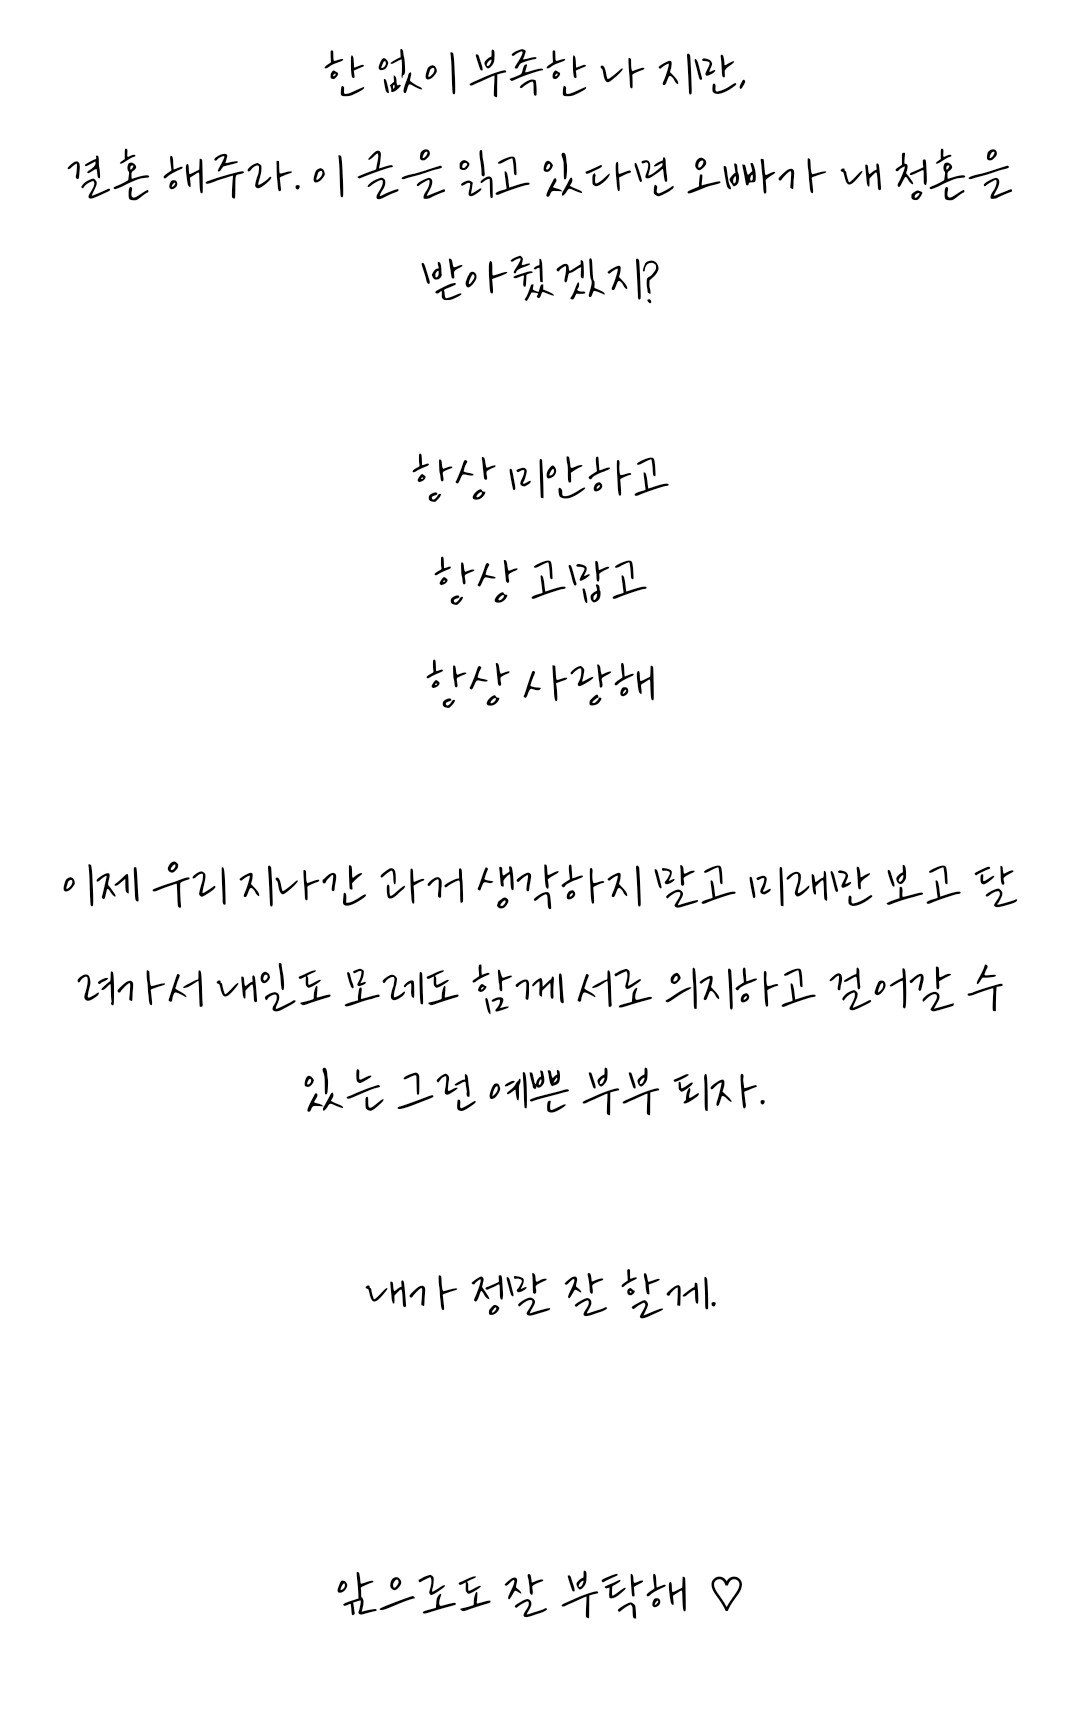 한 없이 부족한 나 지만,
결혼 해주라. 이 글을 읽고 있다면 오빠가 내 청혼을
받아줬겠지?
항상 미안하고
항상 고맙고
항상 사랑해
이제 우리 지나간 과거 생각하지 말고 미래만 보고 달
려가서 내일도 모레도 함께 서로 의지하고 걸어갈 수
있는 그런 예쁜 부부 되자.
내가 정말 잘 할게.
앞으로도 잘 부탁해 ♡